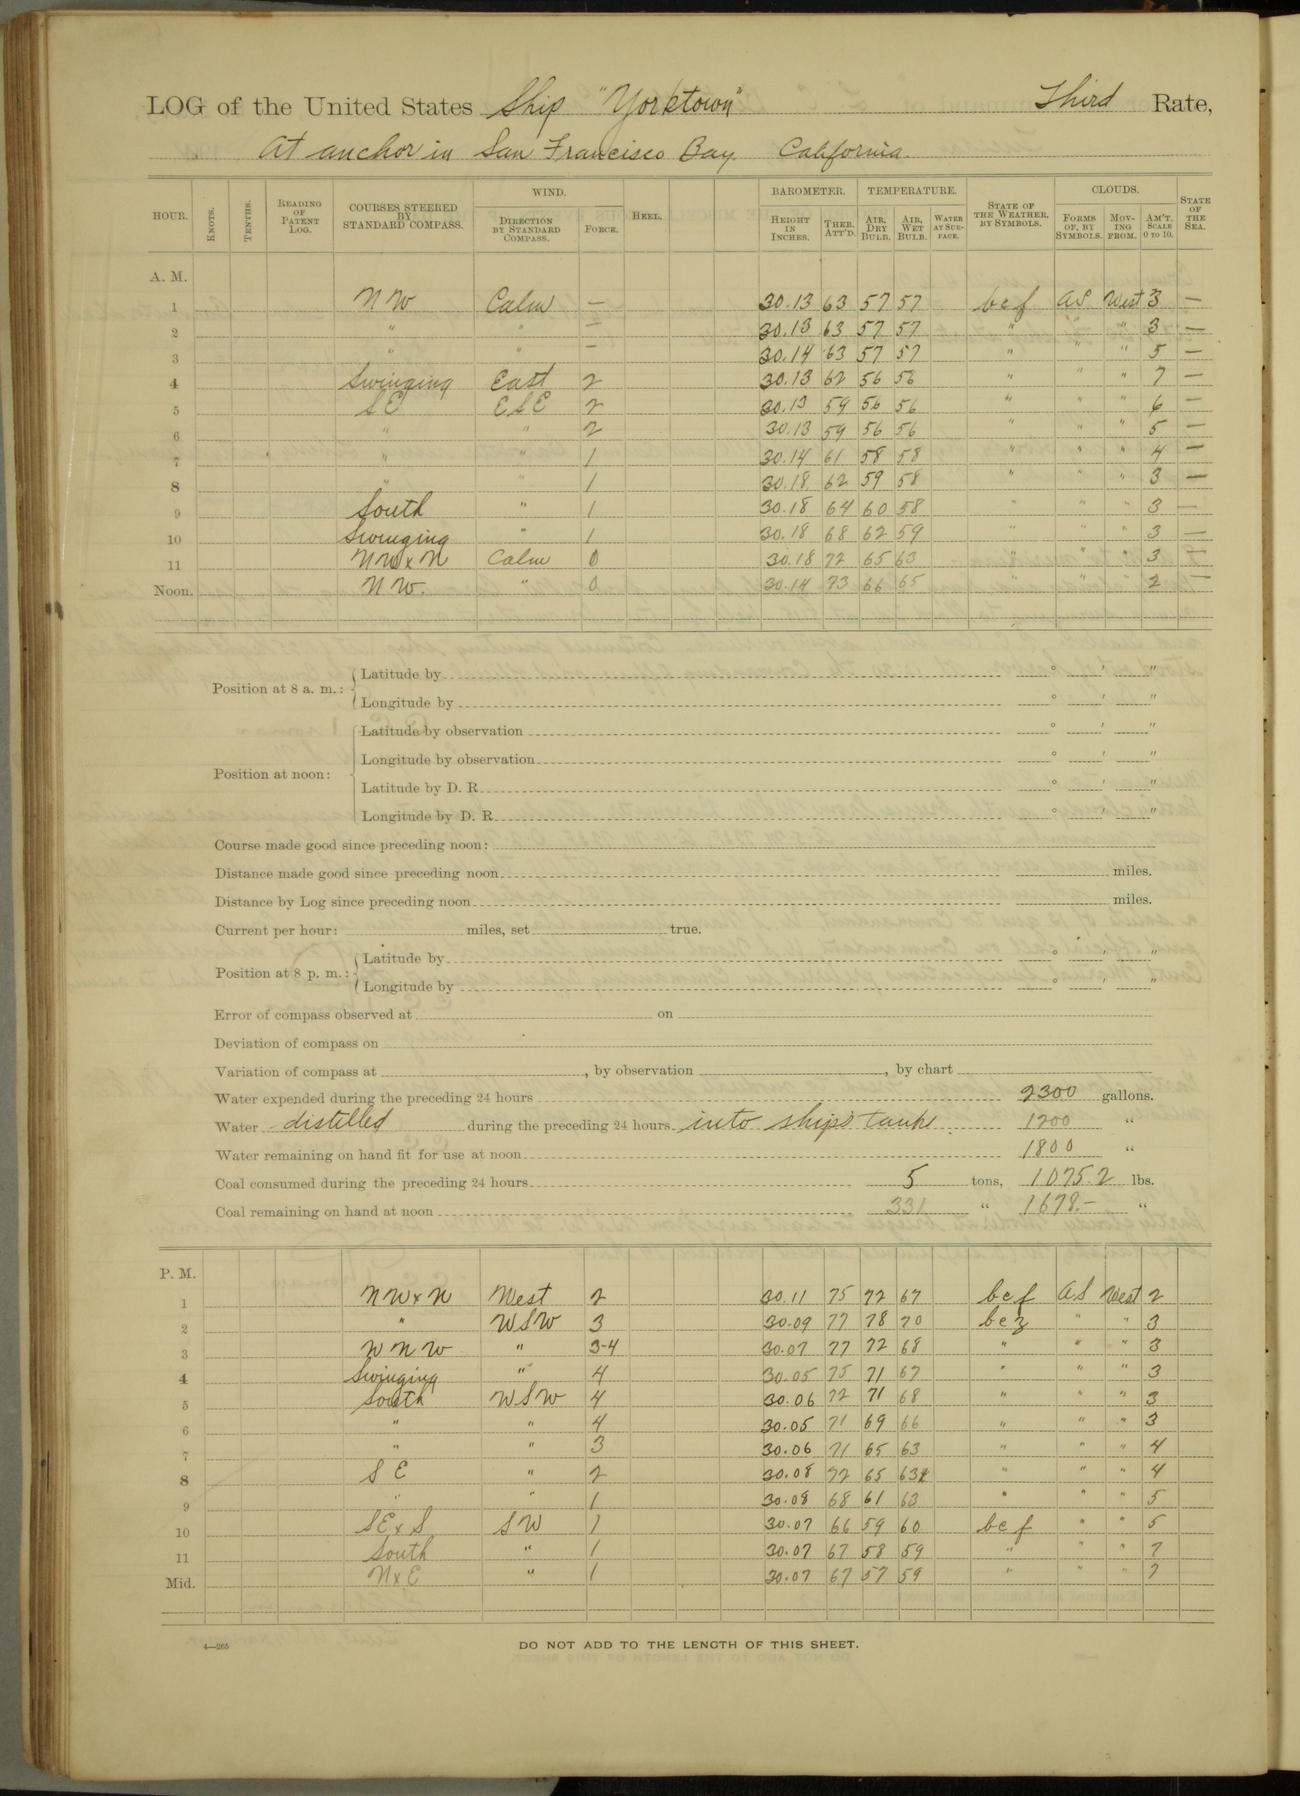 LOG of the United States Ship "Yorktown" Third Rate,
At anchor in San Francisco Bay California
HOUR. KNOTS. TENTHS. READING OF PATENT LOG. COURSES STEERED BY STANDARD COMPASS. WIND. DIRECTION BY STANDARD COMPASS. FORCE. HEEL. BAROMETER. HEIGHT IN INCHES. THER. ATT'D. TEMPERATURE. AIR, DRY BULB. AIR, WET BULB. WATER AT SURFACE. STATE OF THE WEATHER, BY SYMBOLS. CLOUDS. FORMS OF, BY SYMBOLS. MOVING FROM. AM'T. SCALE 0 TO 10. STATE OF THE SEA.
A. M.
1 NW Calm — 30.13 63 57 57 bcf AS West 3 —
2 " " — 30.13 63 57 57 " " " 3 —
3 " " — 30.14 63 57 57 " " " 5 —
4 Swinging East 2 30.13 62 56 56 " " " 7 —
5 SE ESE 2 30.13 59 56 56 " " " 6 —
6 " " 2 30.13 59 56 56 " " " 5 —
7 " " 1 30.14 61 58 58 " " " 4 —
8 " " 1 30.18 62 59 58 " " " 3 —
9 South " 1 30.18 64 60 58 " " " 3 —
10 Swinging " 1 30.18 68 62 59 " " " 3 —
11 NWxN Calm 0 30.18 72 65 63 " " " 3 —
Noon. NW. " 0 30.14 73 66 65 " " " 2 —
Position at 8 a. m.: Latitude by ° ' "
Longitude by ° ' "
Position at noon: Latitude by observation ° ' "
Longitude by observation ° ' "
Latitude by D. R. ° ' "
Longitude by D. R. ° ' "
Course made good since preceding noon:
Distance made good since preceding noon miles.
Distance by Log since preceding noon miles.
Current per hour: miles, set true.
Position at 8 p. m.: Latitude by ° ' "
Longitude by ° ' "
Error of compass observed at on
Deviation of compass on
Variation of compass at , by observation , by chart
Water expended during the preceding 24 hours 2300 gallons.
Water distilled during the preceding 24 hours into ship's tanks. 1200 "
Water remaining on hand fit for use at noon 1800 "
Coal consumed during the preceding 24 hours 5 tons, 1075.2 lbs.
Coal remaining on hand at noon 331 " 1678.- "
P. M.
1 NWxN West 2 30.11 75 72 67 bcf AS West 2
2 " WSW 3 30.09 77 78 70 bcz " " 3
3 WNW " 3-4 30.07 77 72 68 " " " 3
4 Swinging " 4 30.05 75 71 67 " " " 3
5 South WSW 4 30.06 72 71 68 " " " 3
6 " " 4 30.05 71 69 66 " " " 3
7 " " 3 30.06 71 65 63 " " " 4
8 SE " 2 30.08 72 65 63 " " " 4
9 " " 1 30.08 68 61 63 " " " 5
10 SExS SW 1 30.07 66 59 60 bcf " " 5
11 South " 1 30.07 67 58 59 " " " 7
Mid. NxE " 1 30.07 67 57 59 " " " 7
4—265
DO NOT ADD TO THE LENGTH OF THIS SHEET.